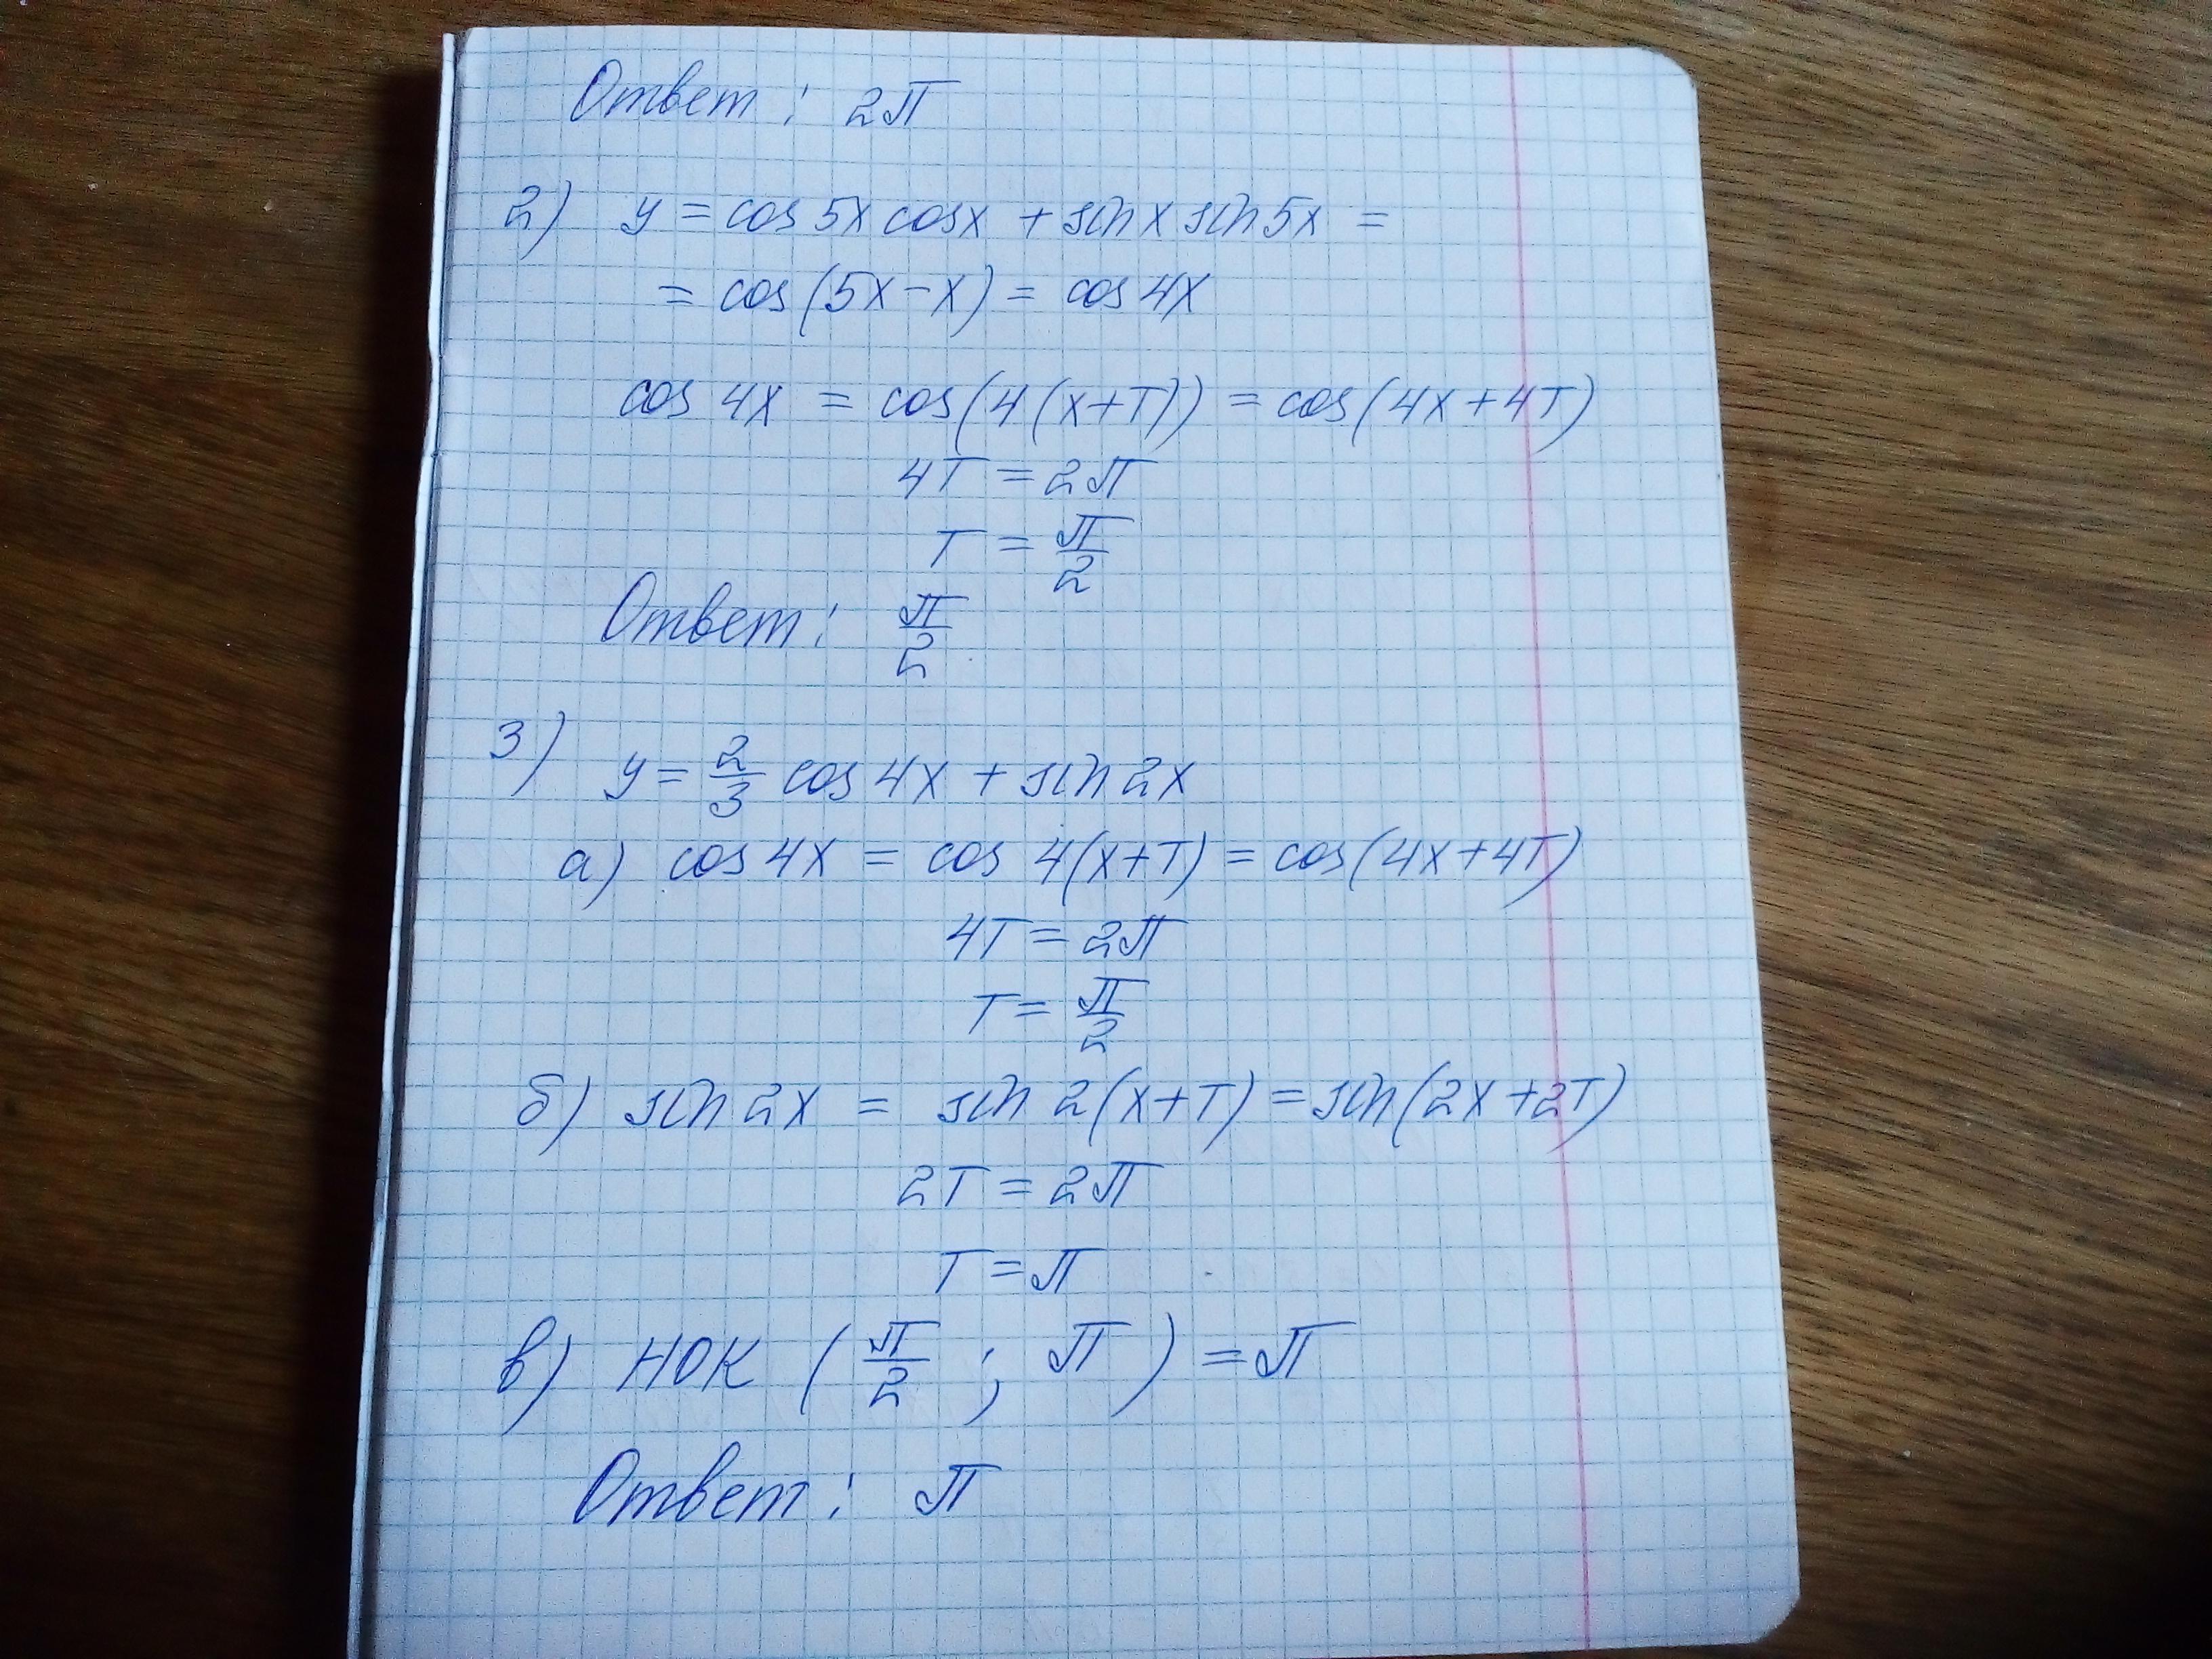 Ответ: 2π
2) y = cos 5x cos x + sin x sin 5x =
= cos(5x − x) = cos 4x
cos 4x = cos(4(x+T)) = cos(4x+4T)
4T = 2π
T = π/2
Ответ: π/2
3) y = 2/3 cos 4x + sin 2x
а) cos 4x = cos 4(x+T) = cos(4x+4T)
4T = 2π
T = π/2
б) sin 2x = sin 2(x+T) = sin(2x+2T)
2T = 2π
T = π
в) НОК (π/2 ; π) = π
Ответ: π